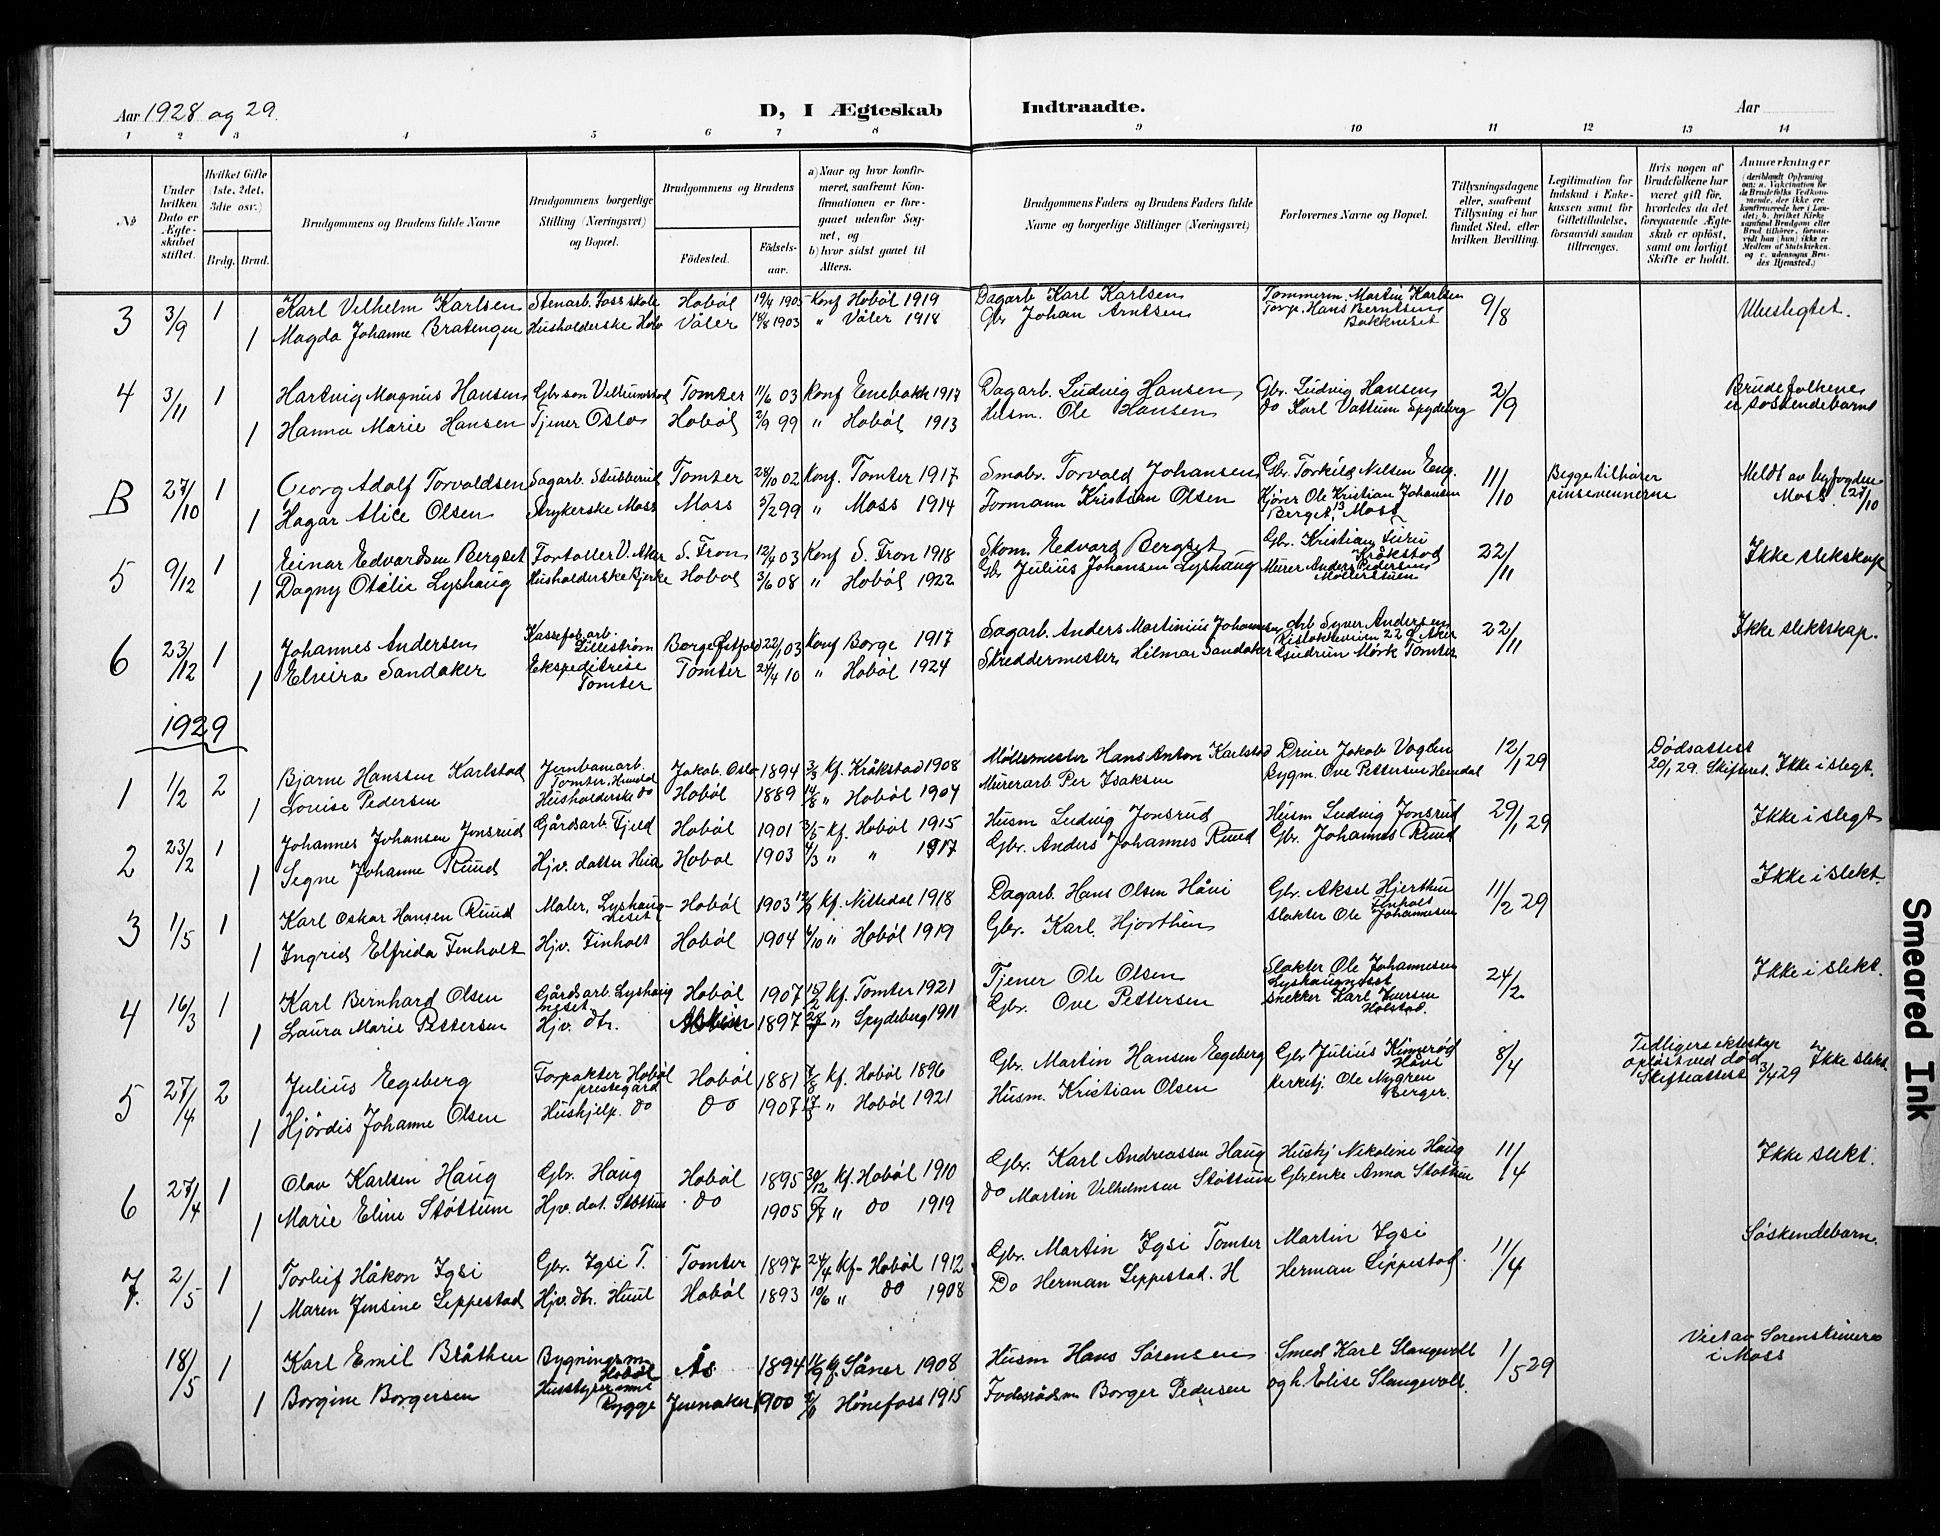 Aar 1928 og 29.
D, I Ægteskab Indtraadte.
Aar
1 2 3 4 5 6 7 8 9 10 11 12 13 14
No
Under hvilken Dato er Ægteskabet stiftet.
Hvilket Gifte (1ste, 2det, 3die osv.)
Brdg. Brud.
Brudgommens og Brudens fulde Navne
Brudgommens borgerlige Stilling (Næringsvei) og Bopæl.
Brudgommens og Brudens
Fødested. Fødselsaar.
a) Naar og hvor konfirmeret, saafremt Konfirmationen er foregaaet udenfor Sognet, og
b) hvor sidst gaaet til Alters.
Brudgommens Faders og Brudens Faders fulde Navne og borgerlige Stillinger (Næringsvei)
Forlovernes Navne og Bopæl.
Tillysningsdagene eller, saafremt Tillysning ei har fundet Sted, efter hvilken Bevilling.
Legitimation for Indskud i Enkekassen samt for Giftetilladelse, forsaavidt saadan tiltrænges.
Hvis nogen af Brudefolkene har været gift før, hvorledes da det foregaaende Ægteskab er opløst, samt om lovligt Skifte er holdt.
Anmærkninger (deriblandt Oplysning om: a. Vakcination for de Brudefolks Vedkommende, der ikke ere konfirmerede her i Landet; b. hvilket Kirkesamfund Brudgom eller Brud tilhører, forsaavidt han (hun) ikke er Medlem af Statskirken, og c. udensogns Brudes Hjemsted.)
3 3/9 1 Karl Vilhelm Karlsen Stenarb. Fossskole Hobøl 19/4 1905 Konf Hobøl 1919 Dagarb Karl Karlsen Tømmerm. Martin Karlsen 9/8 Ubeslegtet.
1 Magda Johanne Bratengen Husholderske Hob Våler 18/8 1903 " Våler 1918 Gbr Johan Arntsen Torp. Hans Berntsen
4 3/11 1 Hartvig Magnus Hansen Gbr søn Tomter 11/6 03 Konf Enebakk 1917 Dagarb. Ludvig Hansen Gbr. Ludvig Hansen 2/9 Brudefolkene
1 Hanna Marie Hansen Tjener Oslo Hobøl 2/9 99 " Hobøl 1913 Husm. Ole Hansen do Karl Vattum Spydeberg er søskendebarn
B 27/10 1 Georg Adolf Torvaldsen Sagarb. Stubberud Tomter 28/10 02 Konf. Tomter 1917 Småbr. Torvald Johansen Gbr. Torkild Nilsen Eng. 11/10 Begge tilhører Meldt av byfogden
1 Hagar Alice Olsen Strykerske Moss Moss 5/2 99 " Moss 1914 Formann Kristian Olsen Kjører Ole Kristian Johansen pinsevennerne Moss 27/10
Berget 13 Moss
5 9/12 1 Einar Edvardsen Bergset Fortøller V. Aker S. Fron 12/4 03 Konf S. Fron 1918 Skom. Edvard Bergset Gbr. Kristian Furu 22/11 Ikke slekskap
Kråkstad
1 Dagny Otilie Lyshaug Husholderske Bjerke Hobøl 3/6 08 " Hobøl 1922 Gbr Julius Johansen Lyshaug Murer Anders Pedersen
Møllerstuen
6 23/12 1 Johannes Andersen Kassefab.arb. Lillestrøm Borge Østfold 22/1 03 Konf Borge 1917 Sagarb. Anders Martinius Johansen Arb Syver Andersen 22/11 Ikke slektskap.
1 Elvira Sandaker Ekspeditrise Tomter Tomter 24/4 10 " Hobøl 1924 Skreddermester Hilmar Sandaker Gudrun Mørk Tomter
1929
1 1/2 2 Bjarne Hanssen Karlstad Jernbanarb. Tomter. Jakob. Oslo 1894 kf. Kråkstad 1908 Møllemester Hans Anton Karlstad Dreier Jakob Vogden 12/1 29 Dødsattest
20/1 29. Skifteret. Ikke i slegt.
1 Lovise Pedersen Husholderske do Hobøl 1889 14/8 " Hobøl 1904 Murerarb Per Isaksen Bygm. Ove Pettersen Hemdal
2 23/2 1 Johannes Johansen Jonsrud Gårdsarb. Fjeld Hobøl 1901 3/5 kf. Hobøl 1915 Husm Ludvig Jonsrud Husm Ludvig Jonsrud 29/1 29 Ikke i slegt
1 Segne Johanne Ruud Hjv. datter Hobøl 1903 4/3 " " 1917 Gbr. Anders Johannes Ruud Gbr. Johannes Ruud
3 1/5 1 Karl Oskar Hansen Ruud Maler, Lyshaugneset Hobøl 1903 kf. Nittedal 1918 Dagarb. Hans Olsen Håvi Gbr. Aksel Hjerthen 11/2 29 Ikke i slekt.
Finholt
1 Ingrid Elfrida Finholt Hjv. Finholt Hobøl 1904 4/10 " Hobøl 1919 Gbr. Karl Hjorthen Slakter Ole Johannesen
4 16/3 1 Karl Bernhard Olsen Gårdsarb. Lyshaug neset Hobøl 1907 kf. Tomter 1921 Tjener Ole Olsen Slakter Ole Johannesen 24/2 Ikke i slekt.
Lyshaugneset
1 Laura Marie Pettersen Hjv. dtr. 1897 " Spydeberg 1911 Gbr. Ove Pettersen snekker Karl Iversen
Holstad.
5 27/4 2 Julius Egeberg Forpakter Hobøl prestegård Hobøl 1881 7/8 kf. Hobøl 1896 Gbr. Martin Hansen Egeberg Gbr Julius Kinnerød 8/4 Tidligere ekteskap
Håvi opløst ved død Ikke slekt.
Skifteattest 3/4 29
1 Hjørdis Johanne Olsen Hushjelp. do do 1907 " Hobøl 1921 Husm. Kristian Olsen Kirketj. Ole Nygren
Berger.
6 27/4 1 Olav Karlsen Haug Gbr. Haug Hobøl 1895 30/12 kf. Hobøl 1910 Gbr. Karl Andreassen Haug Hushj Nikoline Haug 11/4 Ikke slekt.
1 Marie Eline Støttum Hjv. dat. Støttum do 1905 6/7 " do 1919 do Martin Vilhelmsen Støttum Gbr.enke Anna Støttum
7. 2/5 1 Torleif Håkon Igsi Gbr. Igsi T. Tomter 1897 24/4 kf. Hobøl 1912 Gbr. Martin Igsi Tomter Martin Igsi 11/4 Søskendebarn.
1 Maren Jensine Leppestad Hjv. dtr. Huul Hobøl 1893 10/6 " do 1908 Do Herman Leppestad. H Herman Leppestad.
18/5 1 Karl Emil Bråthen Bygningsm Hobøl Ås 1894 kf. Såner 1908 Husm Hans Sørensen Smed Karl Slangevoll 1/5 29 Viet av Sorenskriveren
i Moss
1 Borgine Borgersen Rygge Jevnaker 1900 Hønefoss 1915 Borger Pedersen og h. Elise Slangevoll.
Smeared Ink